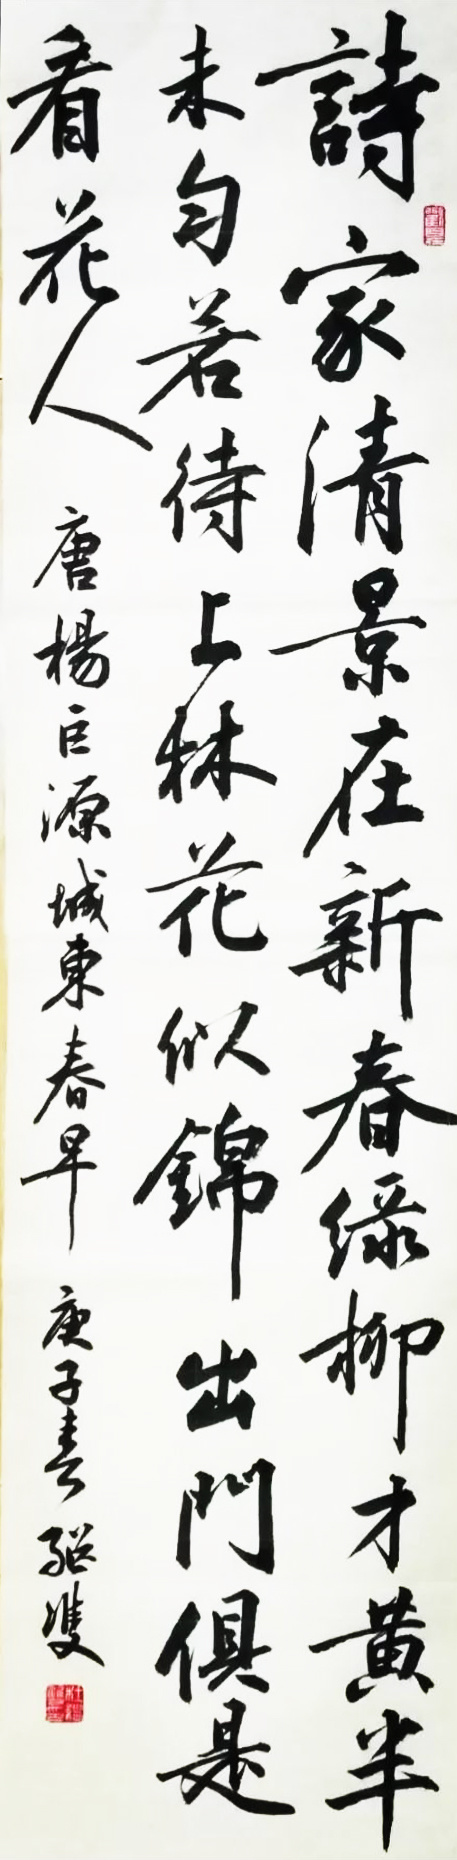 詩家清景在新春緑柳才黄半
未匀若待上林花似錦出門俱是
看花人
唐楊巨源城東春早
庚子春